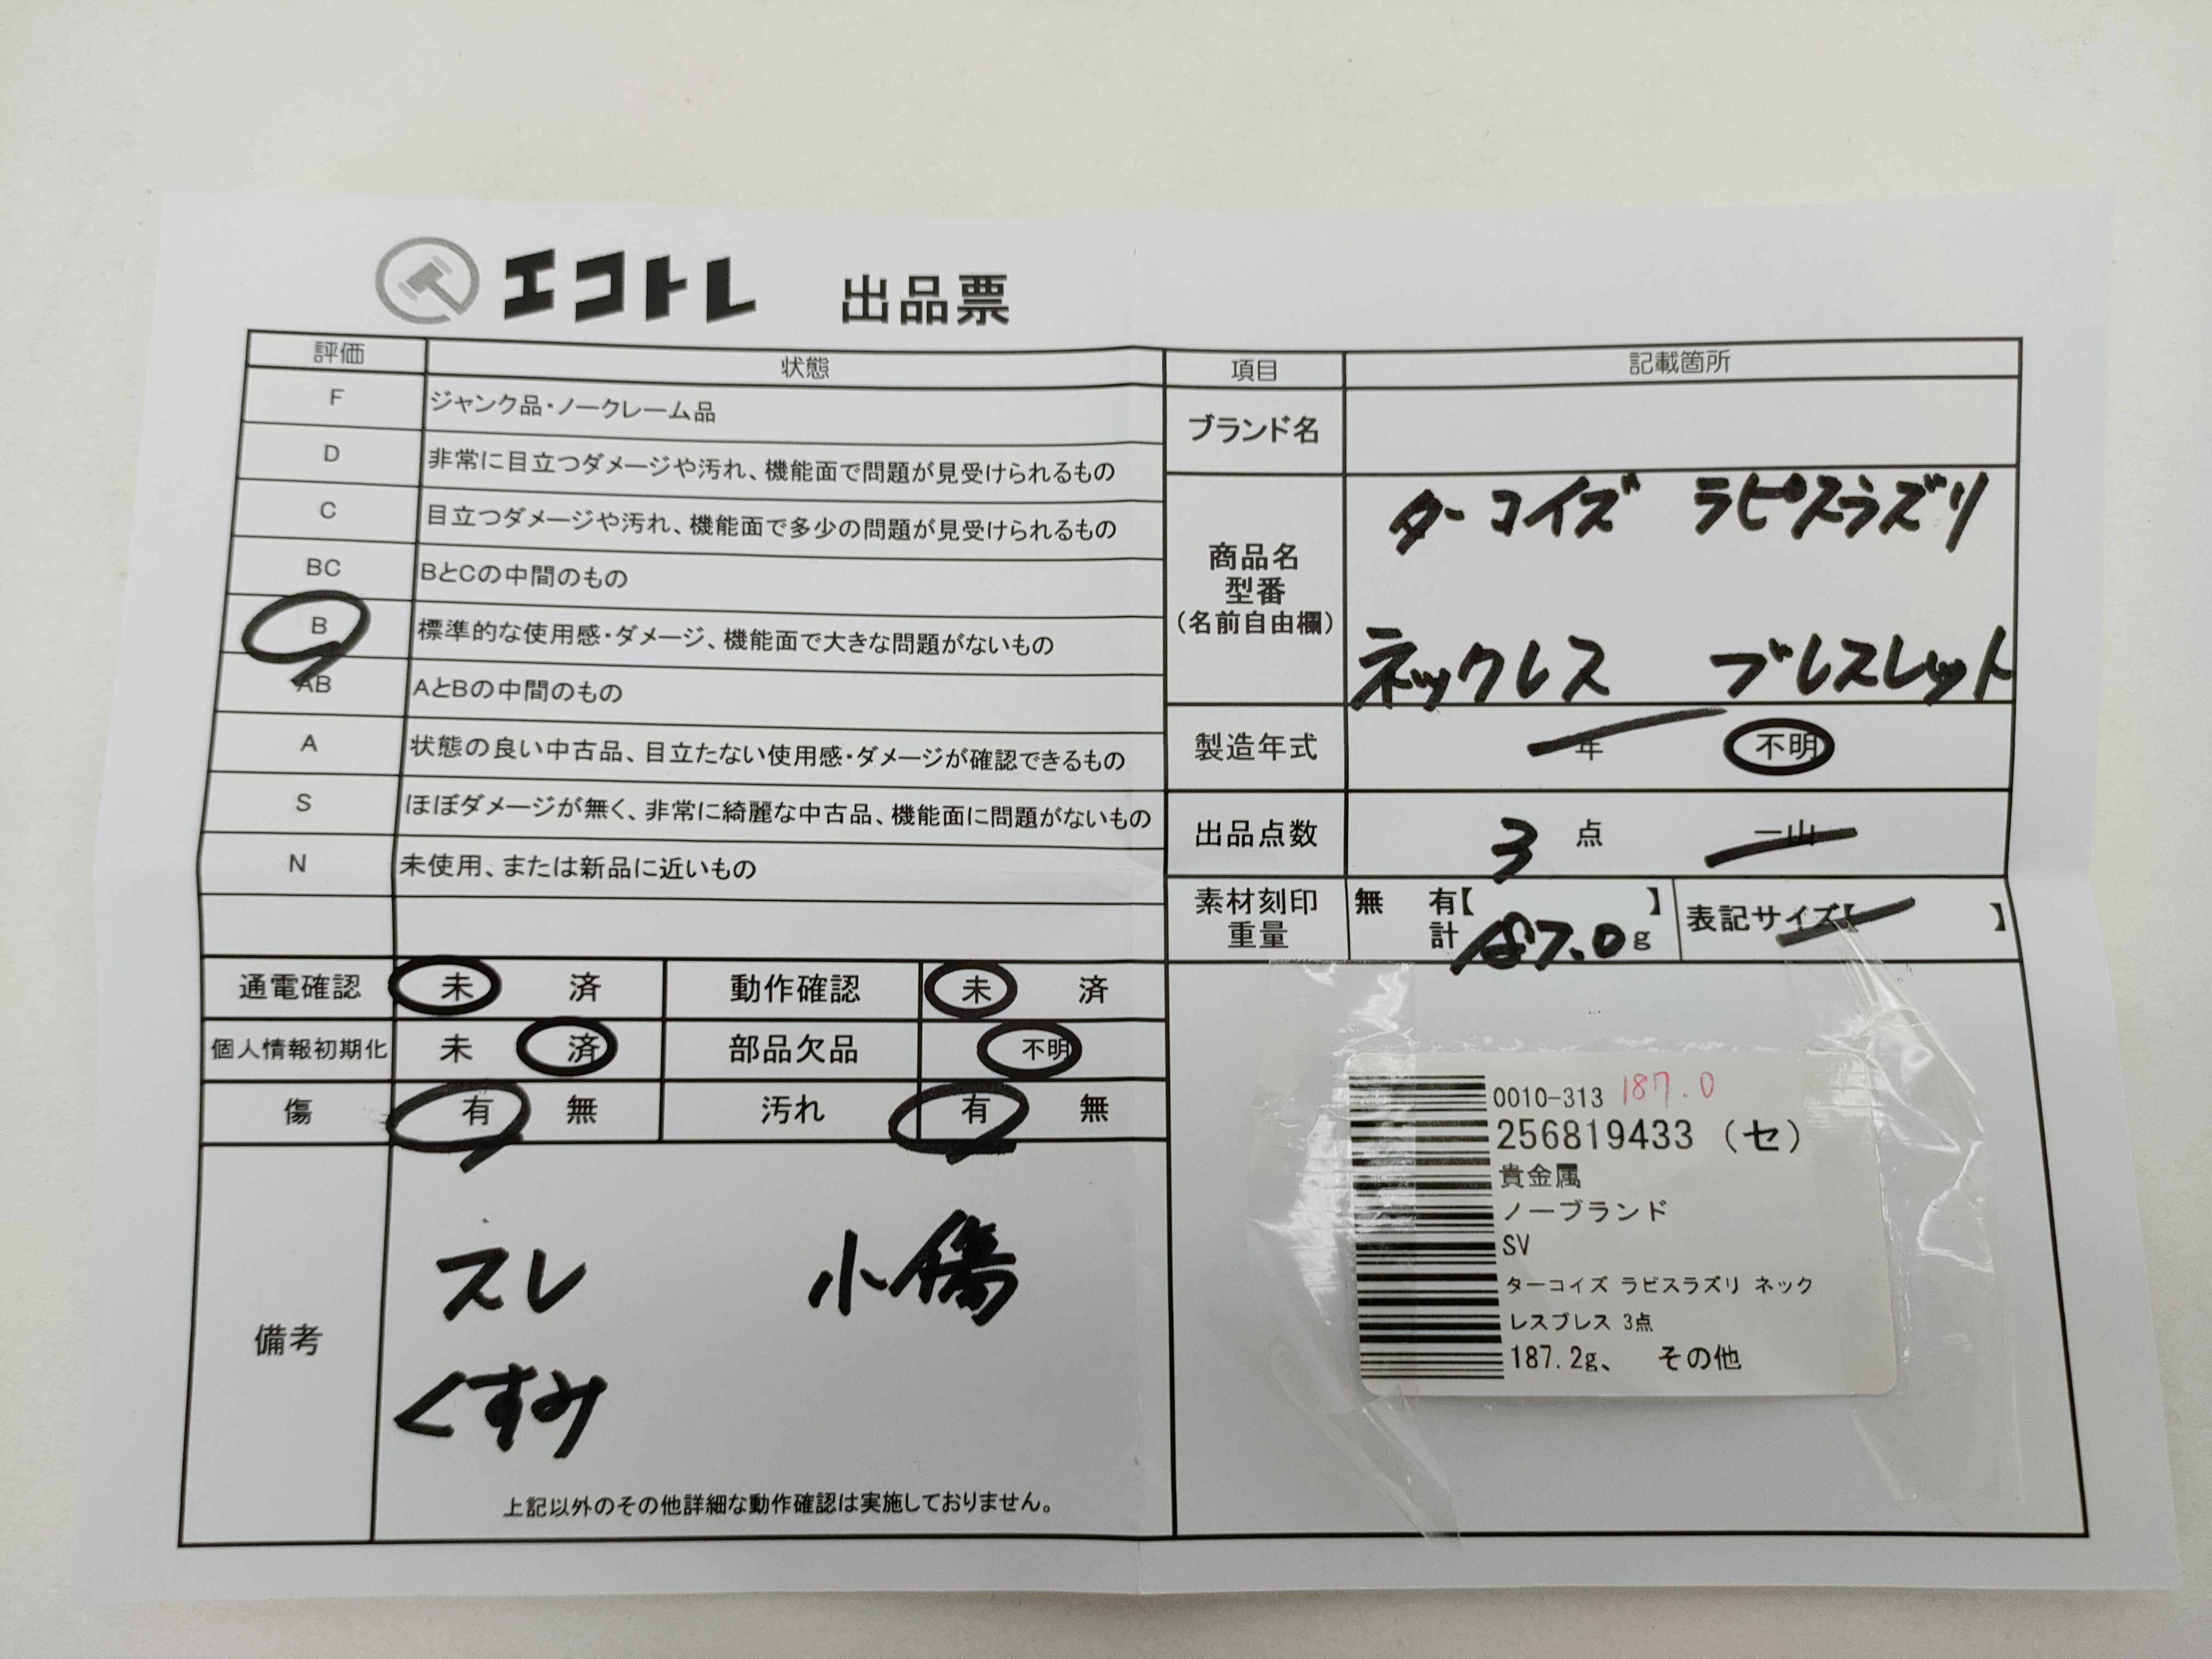 エコトレ 出品票
評価 状態
F ジャンク品・ノークレーム品
D 非常に目立つダメージや汚れ、機能面で問題が見受けられるもの
C 目立つダメージや汚れ、機能面で多少の問題が見受けられるもの
BC BとCの中間のもの
B 標準的な使用感・ダメージ、機能面で大きな問題がないもの
AB AとBの中間のもの
A 状態の良い中古品、目立たない使用感・ダメージが確認できるもの
S ほぼダメージが無く、非常に綺麗な中古品、機能面に問題がないもの
N 未使用、または新品に近いもの
通電確認 未 済 動作確認 未 済
個人情報初期化 未 済 部品欠品 不明
傷 有 無 汚れ 有 無
備考
スレ 小傷
くすみ
上記以外のその他詳細な動作確認は実施しておりません。
項目 記載箇所
ブランド名
商品名
型番
(名前自由欄)
ターコイズ ラピスラズリ
ネックレス ブレスレット
製造年式 年 不明
出品点数 3 点 一山
素材刻印 無 有【 】
重量 計 187.0 g
表記サイズ【 】
0010-313 187.0
256819433 (セ)
貴金属
ノーブランド
SV
ターコイズ ラピスラズリ ネック
レスブレス 3点
187.2g、 その他